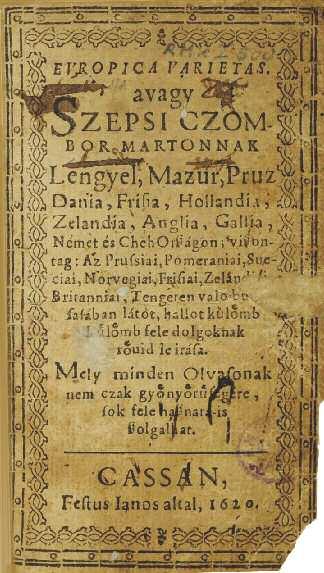 EVROPICA VARIETAS,
avagy
SZEPSI CZOM-
BOR MARTONNAK
Lengyel, Mazur, Pruz
Dania, Frisia, Hollandia,
Zelandia, Anglia, Gallia,
Német és Cheh Orságon, viszon-
tag: Az Prussiai, Pomeraniai, Sue-
ciai, Norvegiai, Frisiai,
Britanniai, Tengeren valo bu
fasában látót, hallot kůlomb
kůlőmb fele dolgoknak
rőuid le irása.
Mely minden Olvasonak
nem czak győnyőrűségére,
sok fele hasznara-is
szolgálhat.
CASSÁN,
Festus Ianos altal, 1620.